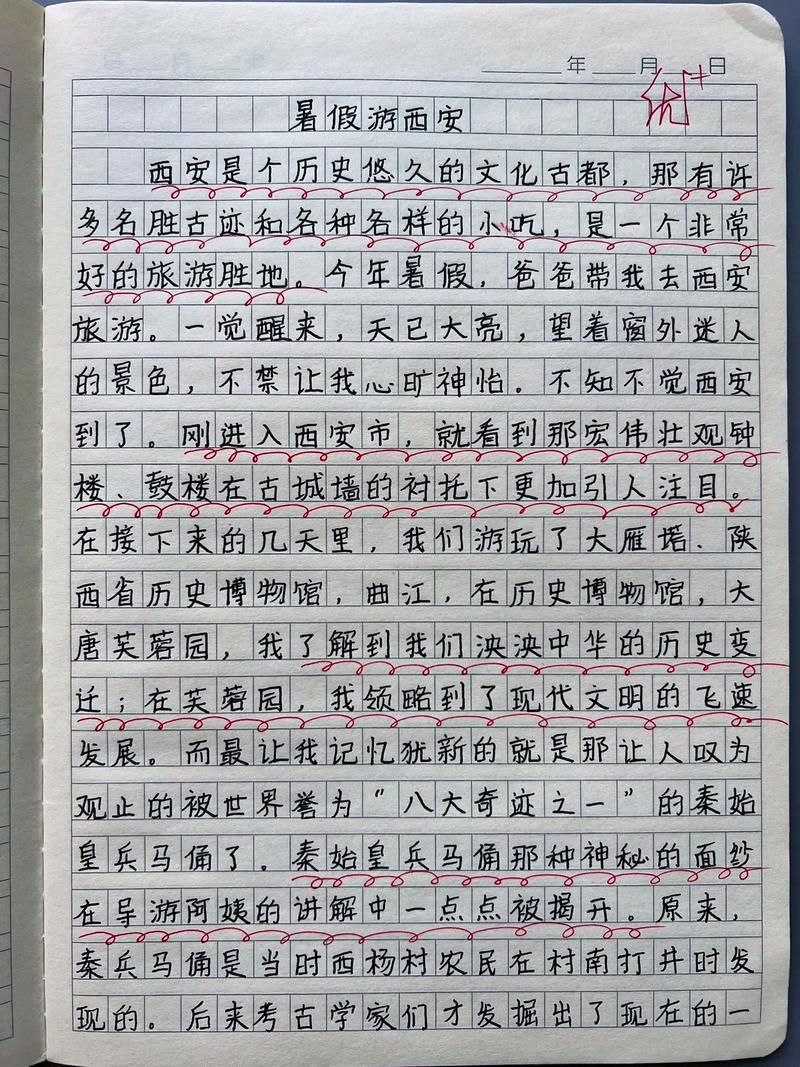 年 月 日
优+
暑假游西安
西安是个历史悠久的文化古都，那有许
多名胜古迹和各种各样的小吃，是一个非常
好的旅游胜地。今年暑假，爸爸带我去西安
旅游。一觉醒来，天已大亮，望着窗外迷人
的景色，不禁让我心旷神怡。不知不觉西安
到了。刚进入西安市，就看到那宏伟壮观钟
楼、鼓楼在古城墙的衬托下更加引人注目。
在接下来的几天里，我们游玩了大雁塔、陕
西省历史博物馆，曲江，在历史博物馆，大
唐芙蓉园，我了解到我们泱泱中华的历史变
迁；在芙蓉园，我领略到了现代文明的飞速
发展。而最让我记忆犹新的就是那让人叹为
观止的被世界誉为“八大奇迹之一”的秦始
皇兵马俑了。秦始皇兵马俑那种神秘的面纱
在导游阿姨的讲解中一点点被揭开。原来，
秦兵马俑是当时西杨村农民在村南打井时发
现的。后来考古学家们才发掘出了现在的一